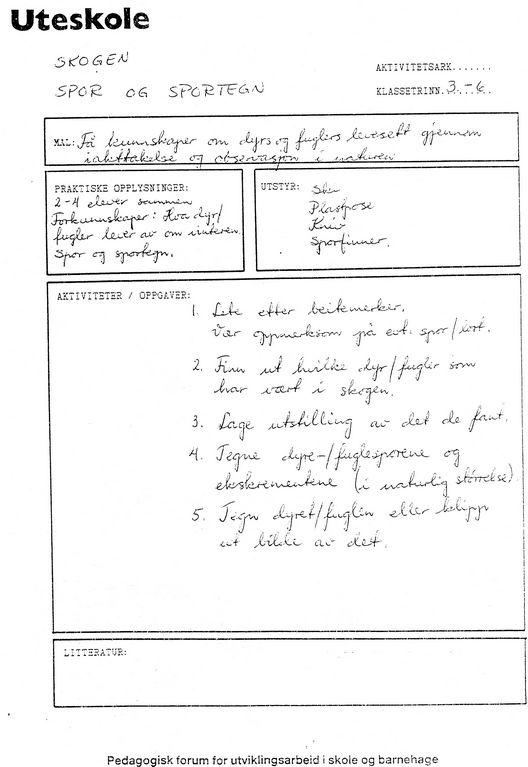 Uteskole
SKOGEN
AKTIVITETSARK.......
SPOR OG SPORTEGN
KLASSETRINN.3.-6.
MÅL: Få kunnskaper om dyrs og fuglers levesett gjennom
iakttakelse og observasjon i naturen
PRAKTISKE OPPLYSNINGER:
2-4 elever sammen
Forkunnskaper: Hva dyr/
fugler lever av om vinteren.
Spor og sportegn.
UTSTYR: Ski
Plastpose
Kniv
Sporfinner.
AKTIVITETER / OPPGAVER:
1. Lete etter beitemerker.
Vær oppmerksom på evt. spor/lort.
2. Finn ut hvilke dyr/fugler som
har vært i skogen.
3. Lage utstilling av det de fant.
4. Tegne dyre-/fuglesporene og
ekskrementene (i naturlig størrelse).
5. Tegn dyret/fuglen eller klipp
ut bilde av det.
LITTERATUR:
Pedagogisk forum for utviklingsarbeid i skole og barnehage